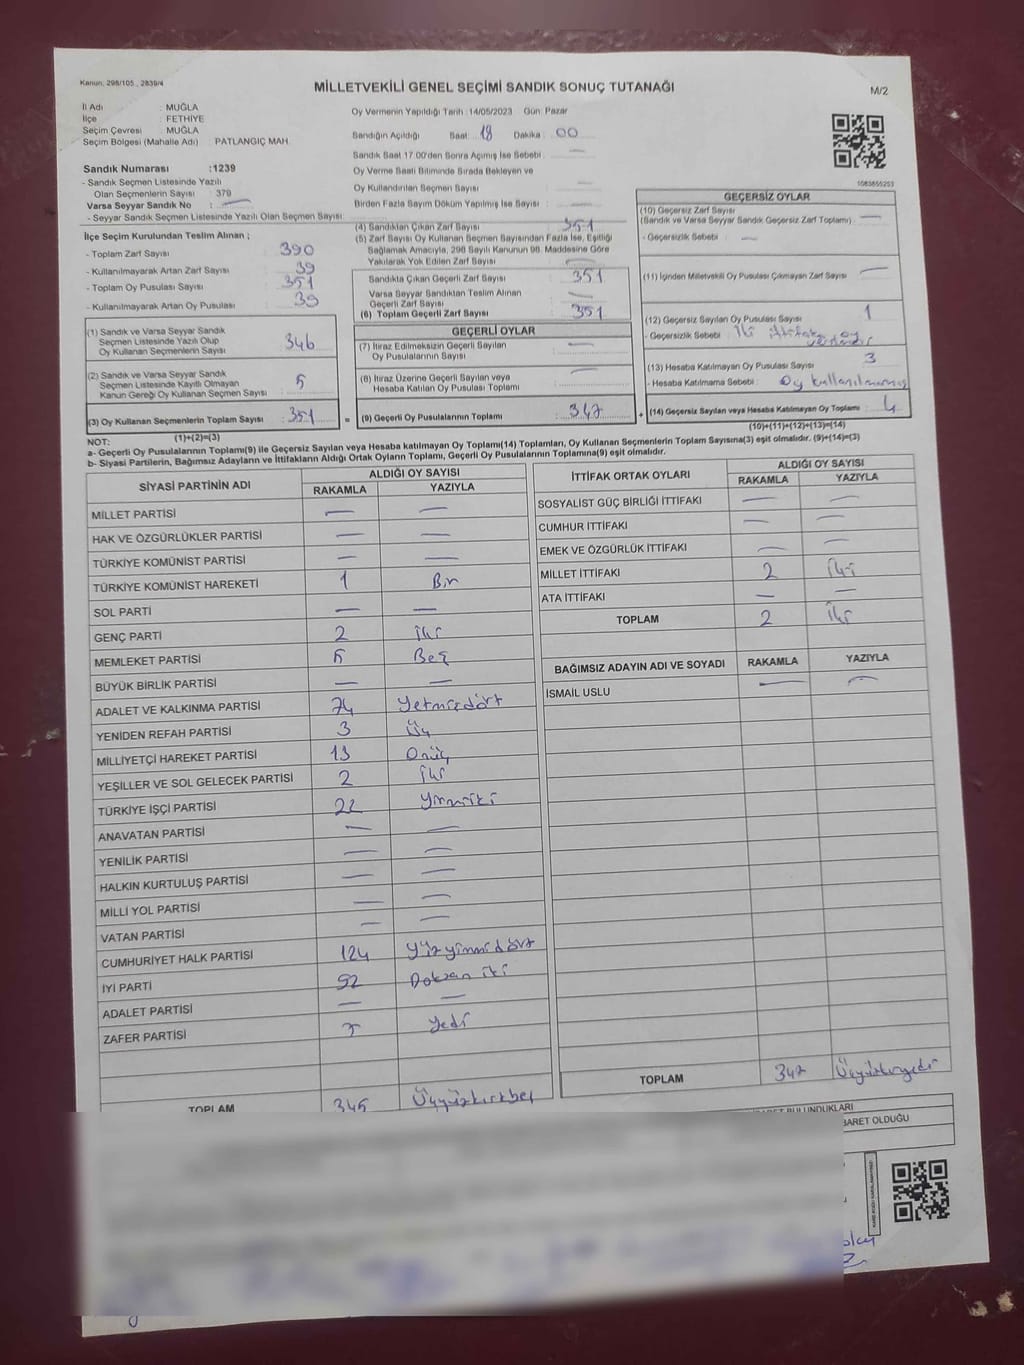 Kanun: 298/105 , 2839/4
MİLLETVEKİLİ GENEL SEÇİMİ SANDIK SONUÇ TUTANAĞI
M/2
İl Adı : MUĞLA
İlçe : FETHİYE
Seçim Çevresi : MUĞLA
Seçim Bölgesi (Mahalle Adı) : PATLANGIÇ MAH.
Sandık Numarası :1239
- Sandık Seçmen Listesinde Yazılı
Olan Seçmenlerin Sayısı : 379
Varsa Seyyar Sandık No : —
- Seyyar Sandık Seçmen Listesinde Yazılı Olan Seçmen Sayısı:
Oy Vermenin Yapıldığı Tarih :14/05/2023 Gün: Pazar
Sandığın Açıldığı Saat: 18 Dakika : 00
Sandık Saat 17:00'den Sonra Açılmış İse Sebebi : —
Oy Verme Saati Bitiminde Sırada Bekleyen ve
Oy Kullandırılan Seçmen Sayısı : —
Birden Fazla Sayım Döküm Yapılmış İse Sayısı : —
1083855253
İlçe Seçim Kurulundan Teslim Alınan ;
- Toplam Zarf Sayısı : 390
- Kullanılmayarak Artan Zarf Sayısı : 39
- Toplam Oy Pusulası Sayısı : 351
- Kullanılmayarak Artan Oy Pusulası : 39
(1) Sandık ve Varsa Seyyar Sandık
Seçmen Listesinde Yazılı Olup
Oy Kullanan Seçmenlerin Sayısı : 346
(2) Sandık ve Varsa Seyyar Sandık
Seçmen Listesinde Kayıtlı Olmayan
Kanun Gereği Oy Kullanan Seçmen Sayısı : 5
(3) Oy Kullanan Seçmenlerin Toplam Sayısı : 351
(1)+(2)=(3)
(4) Sandıktan Çıkan Zarf Sayısı : 351
(5) Zarf Sayısı Oy Kullanan Seçmen Sayısından Fazla İse, Eşitliği
Sağlamak Amacıyla, 298 Sayılı Kanunun 98. Maddesine Göre
Yakılarak Yok Edilen Zarf Sayısı : —
Sandıkta Çıkan Geçerli Zarf Sayısı : 351
Varsa Seyyar Sandıktan Teslim Alınan
Geçerli Zarf Sayısı : —
(6) Toplam Geçerli Zarf Sayısı : 351
GEÇERLİ OYLAR
(7) İtiraz Edilmeksizin Geçerli Sayılan
Oy Pusulalarının Sayısı : —
(8) İtiraz Üzerine Geçerli Sayılan veya
Hesaba Katılan Oy Pusulası Toplamı : —
= (9) Geçerli Oy Pusulalarının Toplamı : 347
GEÇERSİZ OYLAR
(10) Geçersiz Zarf Sayısı
(Sandık ve Varsa Seyyar Sandık Geçersiz Zarf Toplamı) : —
- Geçersizlik Sebebi : —
(11) İçinden Milletvekili Oy Pusulası Çıkmayan Zarf Sayısı : —
(12) Geçersiz Sayılan Oy Pusulası Sayısı : 1
- Geçersizlik Sebebi : İki ittifaka oy
(13) Hesaba Katılmayan Oy Pusulası Sayısı : 3
- Hesaba Katılmama Sebebi : Oy kullanılmamış
+ (14) Geçersiz Sayılan veya Hesaba Katılmayan Oy Toplamı : 4
(10)+(11)+(12)+(13)=(14)
NOT:
a- Geçerli Oy Pusulalarının Toplam(9) ile Geçersiz Sayılan veya Hesaba katılmayan Oy Toplamı(14) Toplamları, Oy Kullanan Seçmenlerin Toplam Sayısına(3) eşit olmalıdır. (9)+(14)=(3)
b- Siyasi Partilerin, Bağımsız Adayların ve İttifakların Aldığı Ortak Oyların Toplamı, Geçerli Oy Pusulalarının Toplamına(9) eşit olmalıdır.
SİYASİ PARTİNİN ADI ALDIĞI OY SAYISI
RAKAMLA YAZIYLA
MİLLET PARTİSİ — —
HAK VE ÖZGÜRLÜKLER PARTİSİ — —
TÜRKİYE KOMÜNİST PARTİSİ — —
TÜRKİYE KOMÜNİST HAREKETİ 1 Bir
SOL PARTİ — —
GENÇ PARTİ 2 İki
MEMLEKET PARTİSİ 5 Beş
BÜYÜK BİRLİK PARTİSİ — —
ADALET VE KALKINMA PARTİSİ 74 Yetmişdört
YENİDEN REFAH PARTİSİ 3 Üç
MİLLİYETÇİ HAREKET PARTİSİ 13 Onüç
YEŞİLLER VE SOL GELECEK PARTİSİ 2 İki
TÜRKİYE İŞÇİ PARTİSİ 22 Yirmiiki
ANAVATAN PARTİSİ — —
YENİLİK PARTİSİ — —
HALKIN KURTULUŞ PARTİSİ — —
MİLLİ YOL PARTİSİ — —
VATAN PARTİSİ — —
CUMHURİYET HALK PARTİSİ 124 Yüzyirmidört
İYİ PARTİ 92 Doksan iki
ADALET PARTİSİ — —
ZAFER PARTİSİ 7 Yedi
TOPLAM 345 Üçyüzkırkbeş
İTTİFAK ORTAK OYLARI ALDIĞI OY SAYISI
RAKAMLA YAZIYLA
SOSYALİST GÜÇ BİRLİĞİ İTTİFAKI — —
CUMHUR İTTİFAKI — —
EMEK VE ÖZGÜRLÜK İTTİFAKI — —
MİLLET İTTİFAKI 2 İki
ATA İTTİFAKI — —
TOPLAM 2 İki
BAĞIMSIZ ADAYIN ADI VE SOYADI RAKAMLA YAZIYLA
İSMAİL USLU — —
TOPLAM 347 Üçyüzkırkyedi
BULUNDUKLARI
BARET OLDUĞU